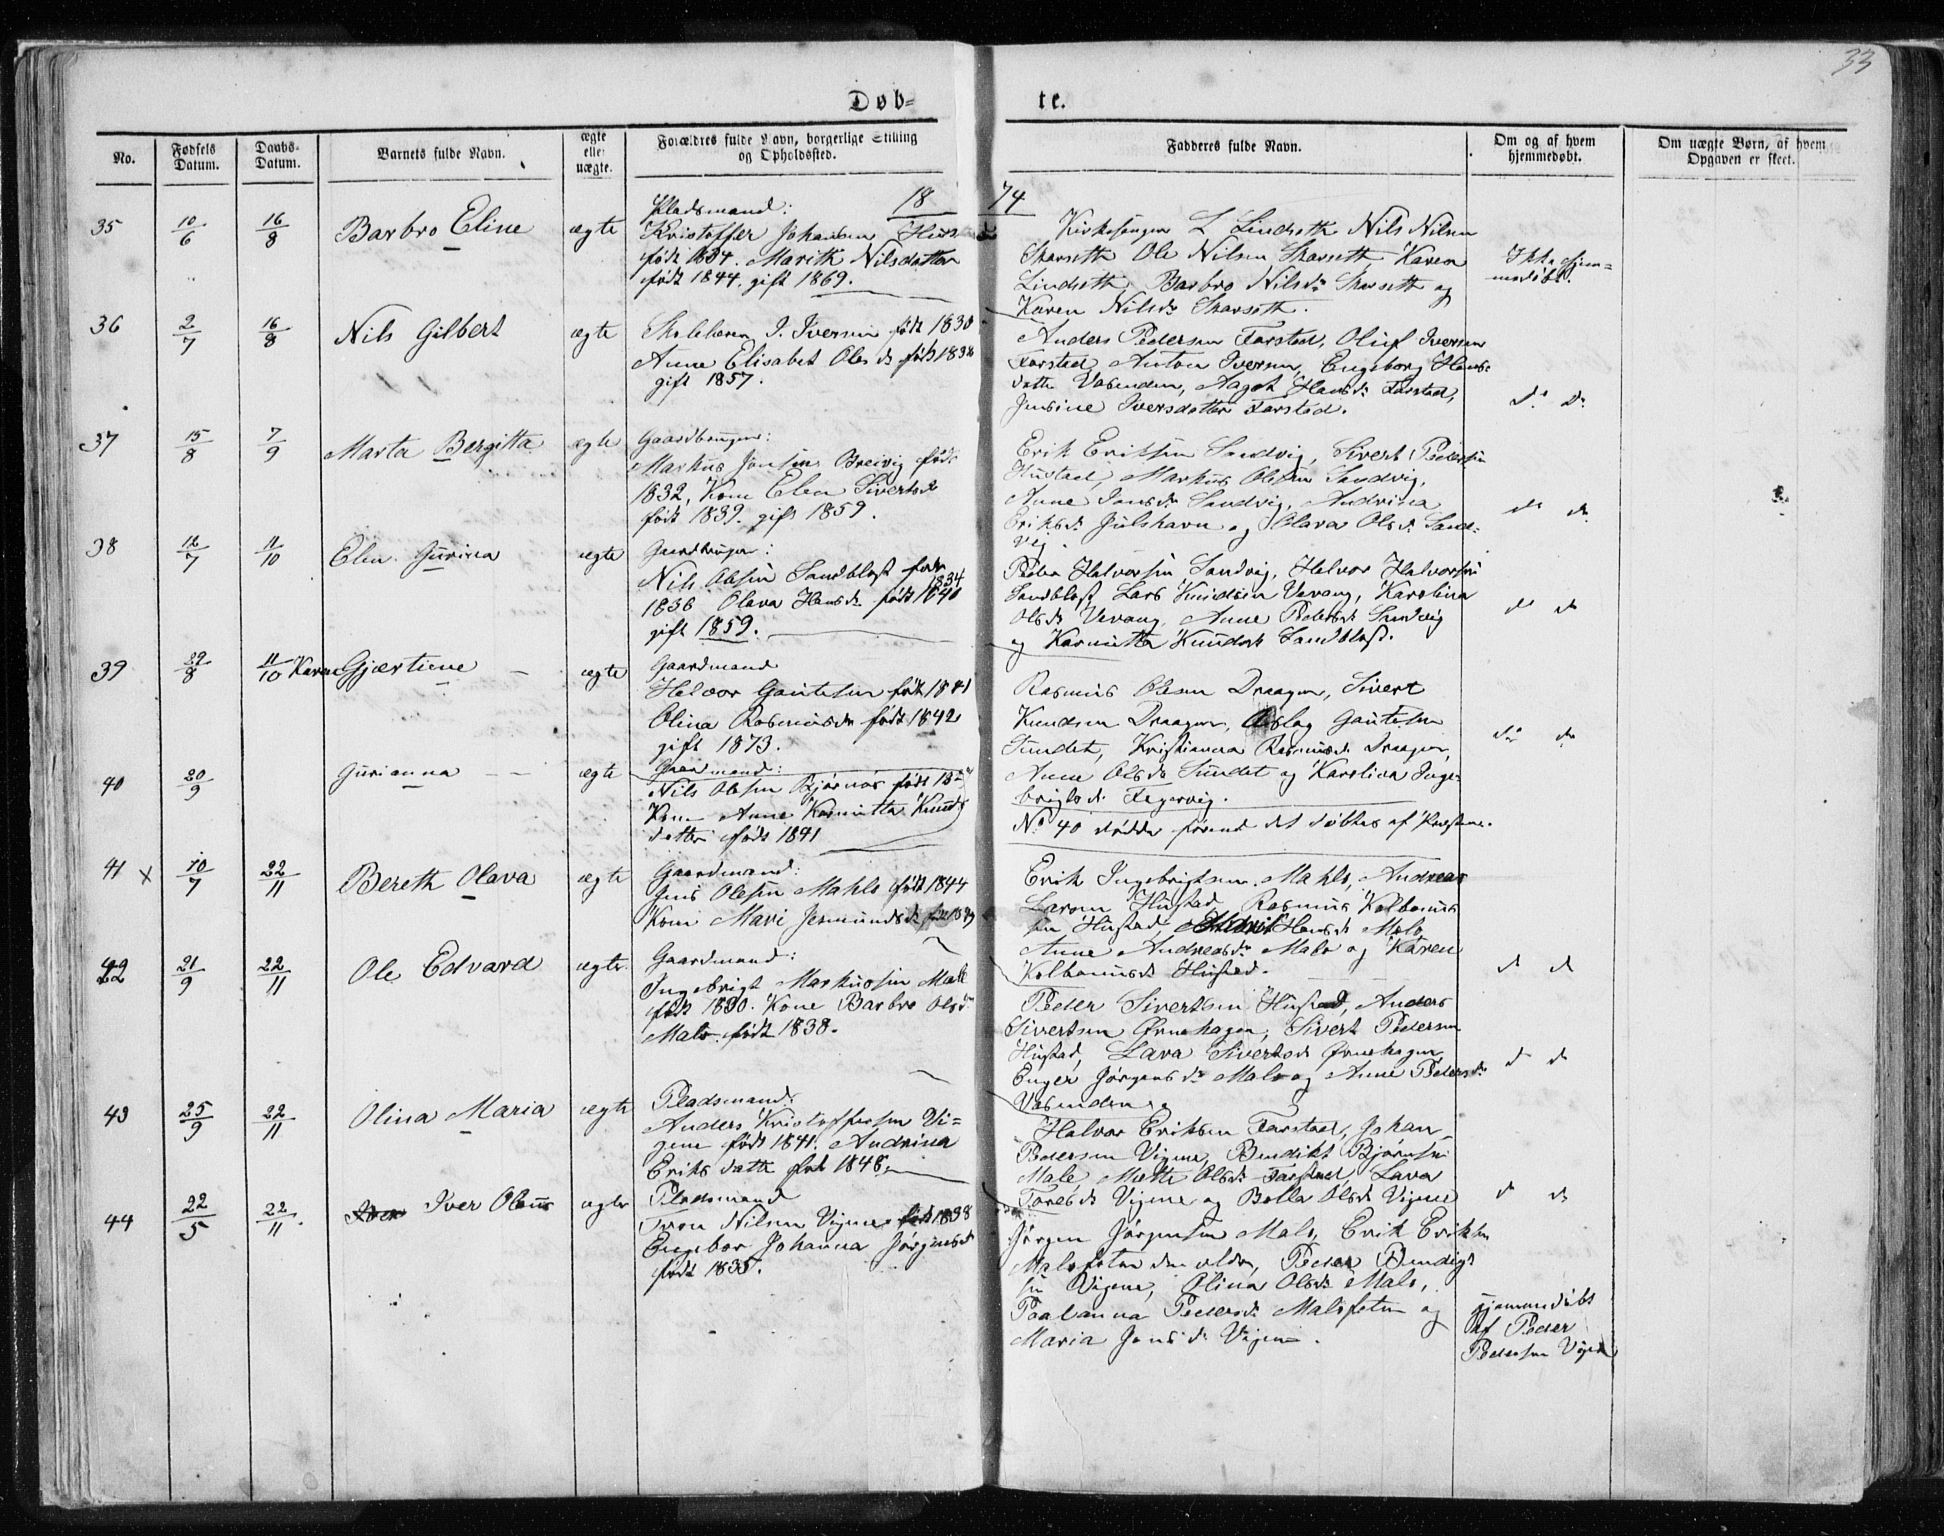 33
Døb= te.
No.
Fødsels Datum.
Daabs-Datum.
Barnets fulde Navn.
ægte eller uægte.
Forældres fulde Navn, borgerlige Stilling og Opholdssted.
Fadderes fulde Navn.
Om og af hvem hjemmedøbt.
Om uægte Børn, af hvem Opgaven er skeet.
18 74
35 10/6 16/8 Barbro Eline ægte
Pladsmand:
Kristoffer Johansen
født 1834. Marith Nilsdatter
født 1844. gift 1869.
Kirkesanger L Lindseth Nils Nilsen
Skarseth Ole Nilsen Skarseth Karen
Lindseth, Barbro Nilsdr Skarseth og
Karen Nilsdr Skarseth.
Ikke hjem=
medøbt.
36 2/7 16/8 Nils Gilbert ægte
Skolelærer I. Iversen født 1830
Anne Elisabet Olesdr født 1838
gift 1857.
Anders Pedersen Farstad, Oluf Iversen
Farstad, Anton Iversen, Engeborg Hans=
datter Vasenden, Aagot Hansdr Farstad,
Jensine Iversdatter Farstad.
do do
37 15/8 7/9 Marta Bergitta ægte
Gaardbruger:
Markus Jonsen Breivig født
1832, Kone Elen Sivertsdr
født 1839. gift 1859.
Erik Eriksen Sandvig, Sivert Pedersen
Hustad, Markus Olesen Sandvig,
Anne Jonsdr Sandvig, Andrina
Eriksdr Julshavn og Olava Olsdr Sand=
vig.
do do
38 12/7 11/10 Elen Gurina ægte
Gaardbruger:
Nils Olesen Sandblost født
1834
1836 Olava Hansdr født 1840
gift 1859.
Peder Halvorsen Sandvig, Halvor Halvorsen
Sandblost Lars Knudsen Vevang, Karolina
Olsdr Vevang, Anne Pedersdr Sandvig
og Karmitta Knudsdr Sandblost.
do do
39 29/8 11/10 Karen Gjærtine ægte
Gaardmand
Halvor Gautesen født 1841
Olina Rasmusdr født 1842
gift 1873.
Rasmus Olesen Draagen, Sivert
Knudsen Draagen, Aslag Gautesen
Sundet, Kristianna Rasmusdr Draagen,
Anne Olsdr Sundet og Karolina Inge=
brigtsdr Fegervig.
do do
40 20/9 Gurianna ægte
Gaardmand:
Nils Olesen Bjørnør født
Kone Anne Karmitta Knuds
datter født 1841
No 40 dødde førend det døbtes af Kræsterne.
41 x 10/7 22/11 Bereth Olava ægte
Gaardmand:
Jens Olesen Mahlo født 1844
Kone Mari Jermundsdr
Erik Ingebrigtsen Mahlo, Andreas
Larsen Hustad, Rasmus Kolbeinus
sen Hustad, Hansdr Malo
Anne Andreasdr Malo og Karen
Kolbeinusdr Hustad.
d d
42 21/9 22/11 Ole Edvard ægte
Gaardmand:
Ingebrigt Markussen Malo
født 1830. Kone Barbro Olsdr
Malo født 1838.
Peder Sivertsen Hustad, Anders
Sivertsen Ørnehagen, Sivert Pedersen
Hustad, Lava Sivertsdr Ørnehagen,
Enger Jørgensdr Malo og Anne Pedersdr
Vasenden.
d d
43 25/9 22/11 Olina Maria ægte
Pladsmand:
Anders Kristoffersen Vi=
gene født 1841. Andrina
Eriksdatter født 1846.
Halvor Eriksen Farstad, Johan
Pedersen Vigene, Bendikt Bjørnsen
Malo, Mette Olsdr Farstad, Lava
Toresdr Vigene og Bolla Olsdr Vigene
d d
44 22/5 22/11 Iver Olaus ægte
Pladsmand
Tron Nilsen Vigene født 1838
Engebor Johanna Jørgensdr
født 1835.
Jørgen Jørgensen Malo, Erik Eriksen
Malofeten den ældre, Peder Bendigt
sen Vigene, Olina Olsdr Malo,
Paalanna Pedersdr Malofeten og
Maria Jonsdr Vigene.
hjemmedøbt
af Peder
Pedersen Vigene